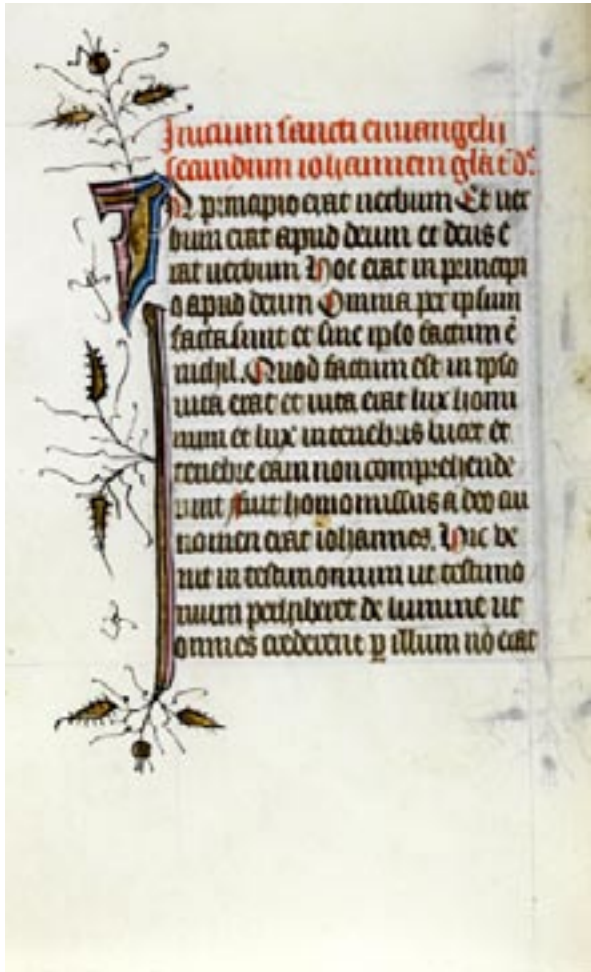 Inicium sancti euuangelij
secundum iohannem gl̄a t̄ dᵉ
In principio erat uerbum Et uer
bum erat apud deum et deus e
rat uerbum Hoc erat in principi
o apud deum Omnia per ipsum
facta sunt et sine ipso factum ē
nichil. Quod factum est in ipso
uita erat et uita erat lux homi
num et lux in tenebris lucet et
tenebre eam non comprehende
runt Fuit homo missus a deo cui
nomen erat iohannes. Hic ve
nit in testimonium ut testimo
nium perhiberet de lumine ut
omnes crederent ꝑ illum nō erat